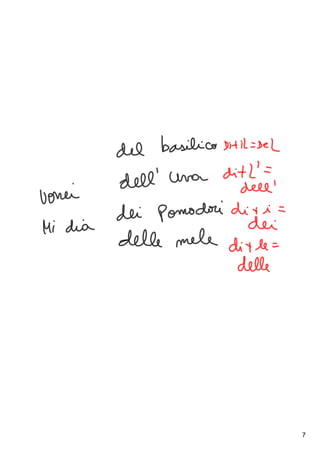 del basilico DI+IL=DEL
dell' uva di+L'=
dell'
Vorrei
dei pomodori di+i=
dei
Mi dia
delle mele di+le=
delle
7